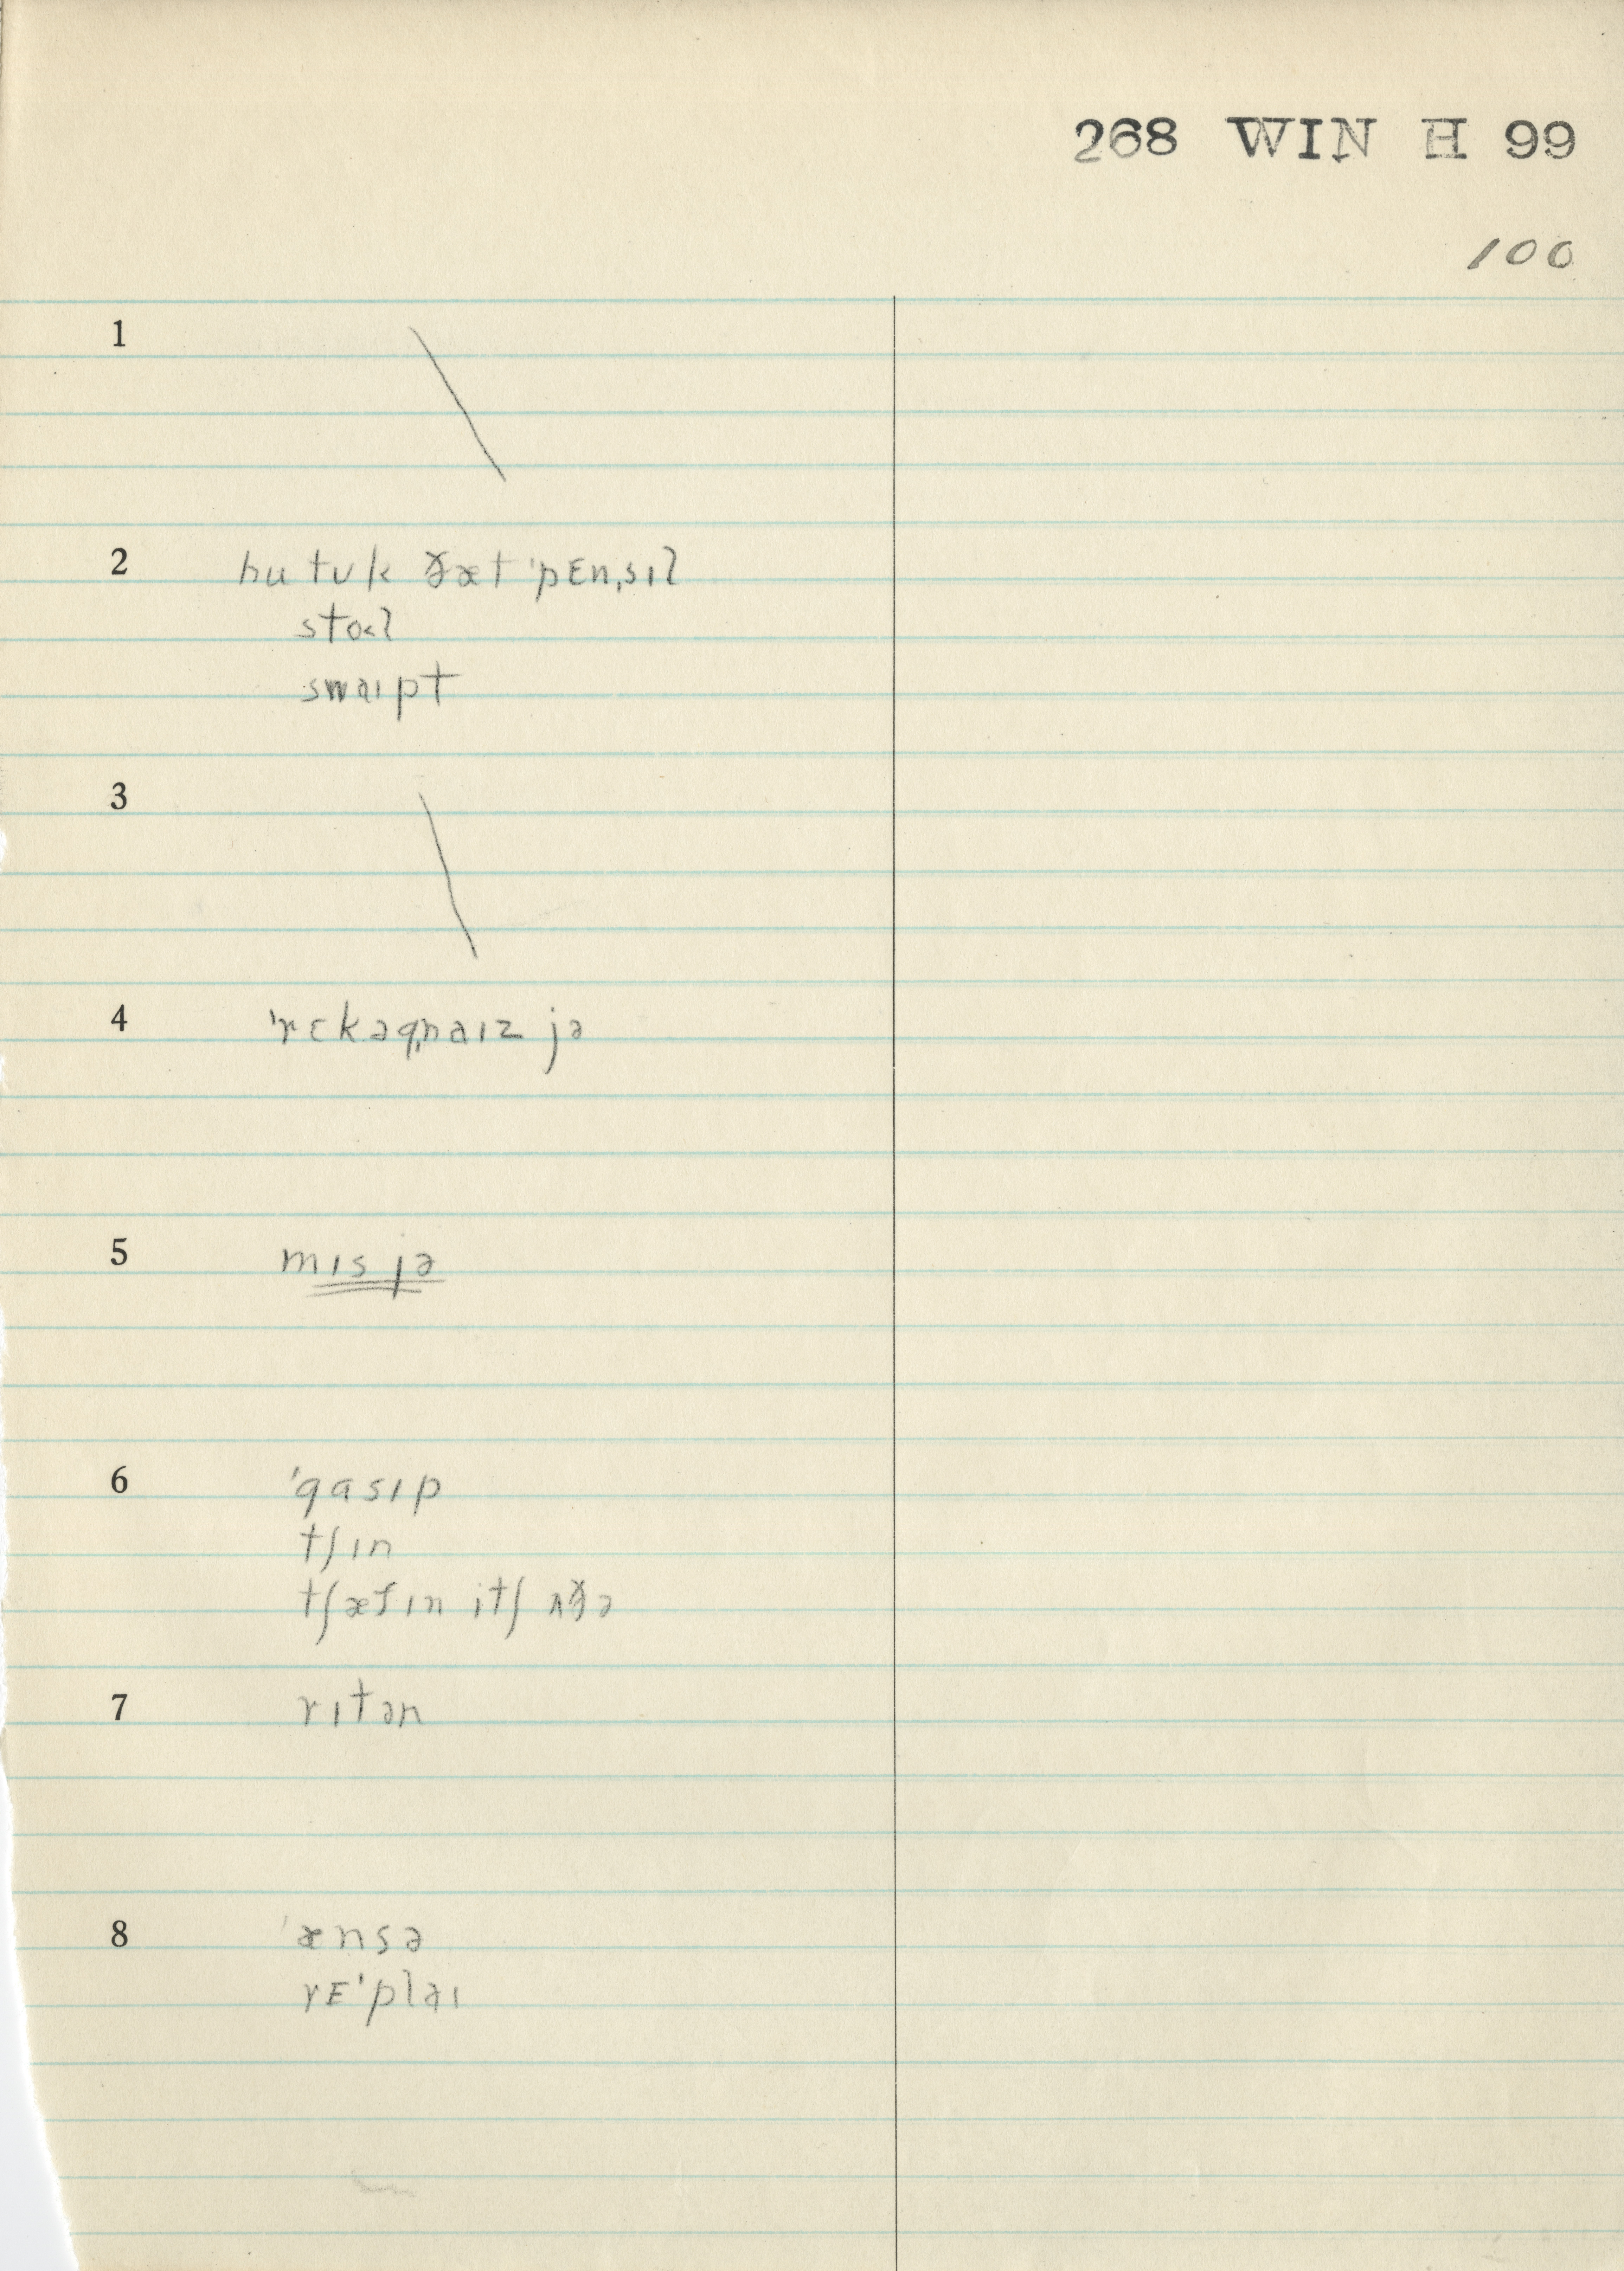 268 WIN H 99
100
1
2 hu tʊk ðæt ˈpɛnˌsɪl
stoəl
swaɪpt
3
4 ˈrɛkəgˌnaɪz jə
5 mɪs jə
6 ˈgasɪp
tʃɪn
tʃætɪn itʃ ʌðə
7 rɪtən
8 ˈænsə
rɛˈplaɪ